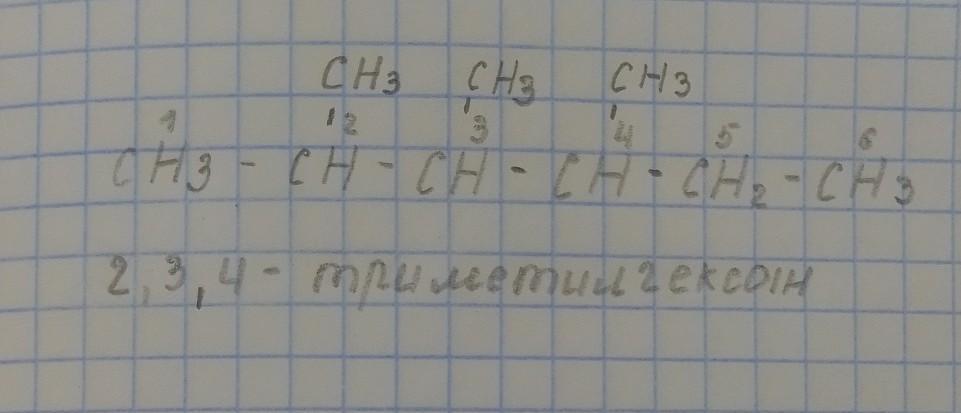 CH3 CH3 CH3
1 2 3 4 5 6
CH3 - CH - CH - CH - CH2 - CH3
2,3,4 - триметилгексан